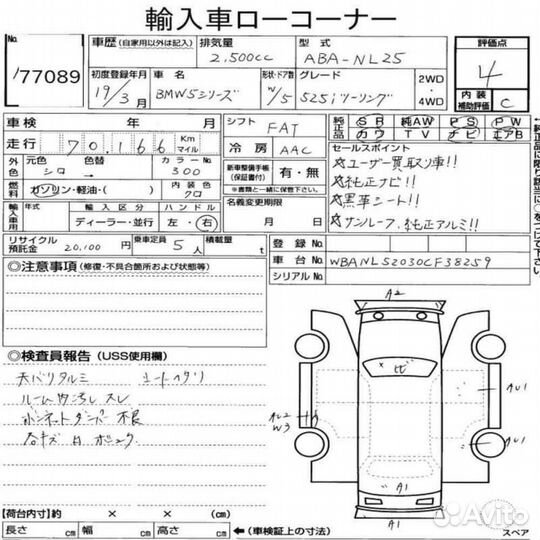 輸入車ローコーナー
No.
77089
車歴 (自家用以外は記入) 排気量 型式
2,500cc ABA-NL25
初度登録年月 車名 形状・ドア数 グレード
19/3月 BMW5シリーズ W/5 525iツーリング
2WD
・
4WD
評価点
4
内装
補助評価 C
車検 年 月
走行 70,166 Km
マイル
外色 元色 色替 カラーNo.
シロ 300
燃料 ガソリン・軽油・( ) 内装色
クロ
輸入車用 年式 輸入区分 ハンドル
ディーラー・並行 左・右
リサイクル
預託金 20,100円 乗車定員 5人 積載量 t
シフト FAT
冷房 AAC
新車整備手帳
(保証書付) 有・無
*書類と一緒に保管して下さい。
名義変更期限
月 日
純正品 SR 純AW PS PW
カワ TV ナビ エアB
セールスポイント
☆ユーザー買取り車!!
☆純正ナビ!!
☆黒革シート!!
☆サンルーフ.純正アルミ!!
登録No.
車台No. WBANL52030CF38259
シリアルNo.
◎注意事項 (修復・不具合箇所および状態等)
◎検査員報告 (USS使用欄)
天バリタルミ シートヘタリ
ルーム内汚レ スレ
ボンネットダンパー不良
A2
ヒ
AU1
AU2
W3
AU1
A1
A1
スペア
【荷台内寸】約 × ×
長さ cm 幅 cm 高さ cm ◀(車検証上の寸法)
Avito